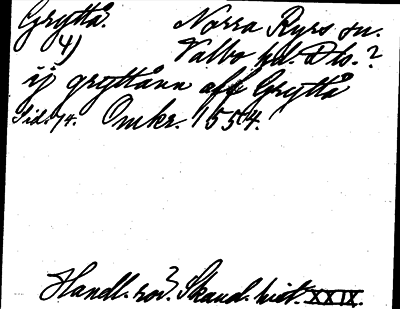 Gryttå. Norra Ryrs sn.
4) Valbo hd. Dls.?
ij gryttånn aff Gryttå
Sid. 74. Omkr. 1554.
Handl. rör. Skand. hist. XXIX.